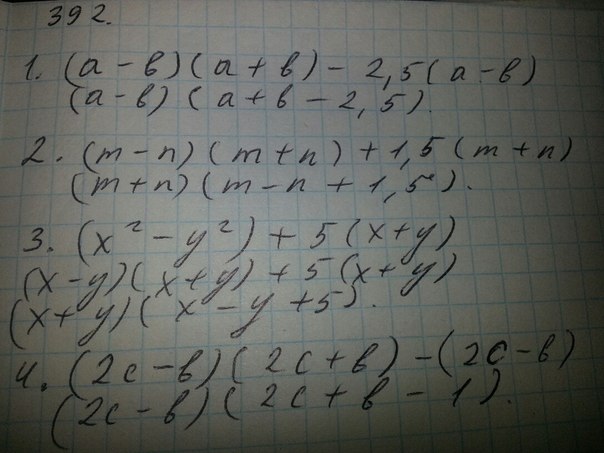 392.
1. (a - в)(a + в) - 2,5(a - в)
(a - в)(a + в - 2,5).
2. (m - n)(m + n) + 1,5(m + n)
(m + n)(m - n + 1,5).
3. (x² - y²) + 5(x + y)
(x - y)(x + y) + 5(x + y)
(x + y)(x - y + 5).
4. (2c - в)(2c + в) - (2c - в)
(2c - в)(2c + в - 1).